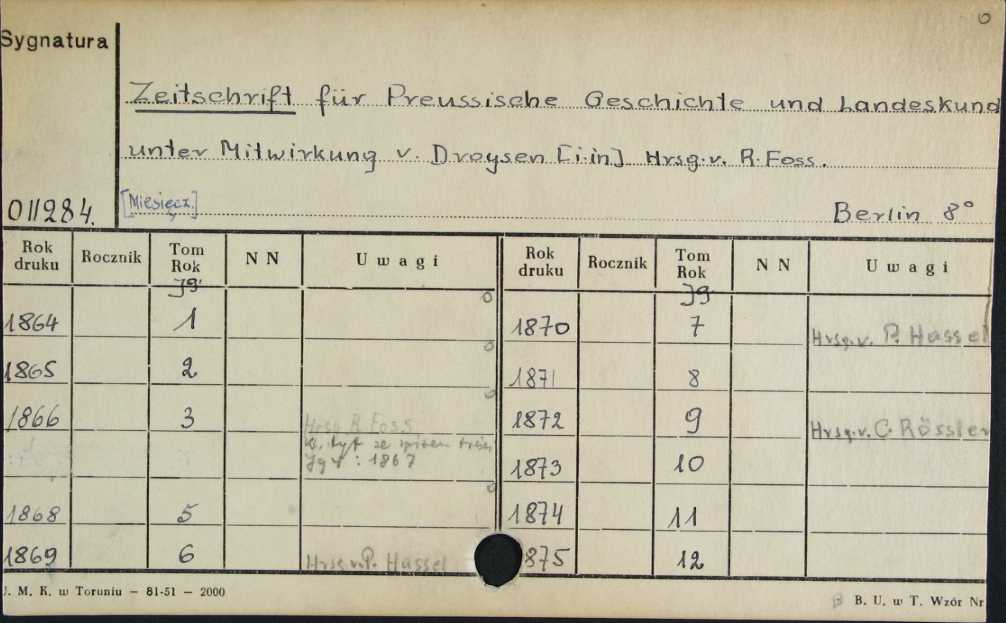 0
Sygnatura
Zeitschrift für Preussische Geschichte und Landeskund
unter Mitwirkung v. Droysen [i in] Hrsg. v. R. Foss.
[Miesięcz.]
011284.
Berlin 8°
Rok druku Rocznik Tom Rok N N Uwagi Rok druku Rocznik Tom Rok N N Uwagi
Jg. Jg
1864 1 1870 7 Hrsg. v. P. Hassel
1865 2 1871 8
1866 3 Hrsg R. Foss 1872 9 Hrsg. v. C. Rössler
ze
Jg 4 : 1867 1873 10
1868 5 1874 11
1869 6 Hrsg. v. P. Hassel 875 12
J. M. K. w Toruniu — 81-51 — 2000
B. U. w T. Wzór Nr